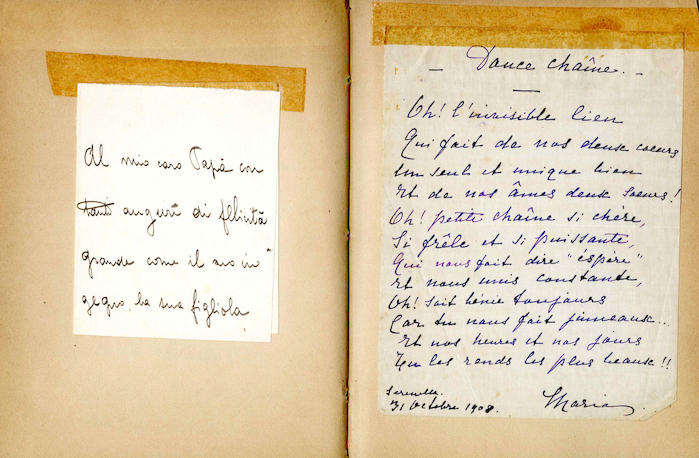 Al mio caro Papà con
tanti auguri di felicità
grande come il suo in
gegno. la sua figliola
- Douce chaîne. -
Oh! l'invisible lien
Qui fait de nos deux coeurs
Un seul et unique bien
Et de nos âmes deux soeurs!
Oh! petite chaîne si chère,
Si frêle et si puissante,
Qui nous fait dire "éspère"
Et nous unis constante,
Oh! soit bénie toujours
Car tu nous fait jumeaux..
Et nos heures et nos jours
Tu les rends les plus beaux!!
31 Octobre 1908.
Maria